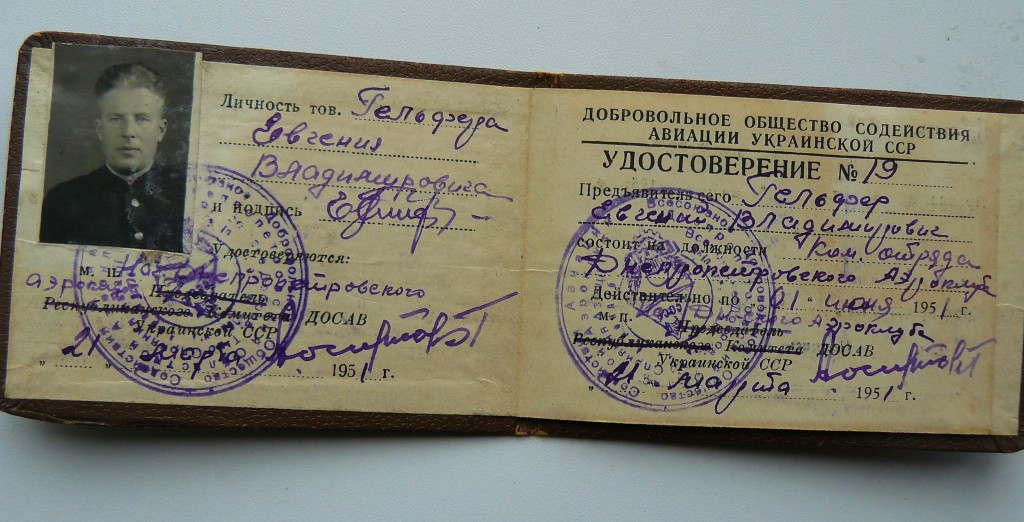 Личность тов. Гельфера
Евгения
Владимировича
и подпись
Удостоверяются:
м. п. Днепропетровского
аэроклуба Председатель
Республиканского Комитета ДОСАВ
Украинской ССР
„21“ марта 1951 г.
ДОБРОВОЛЬНОЕ ОБЩЕСТВО СОДЕЙСТВИЯ
АВИАЦИИ УКРАИНСКОЙ ССР
УДОСТОВЕРЕНИЕ № 19
Предъявитель сего Гельфер
Евгений Владимирович
состоит на должности Ком. Отряда
Днепропетровского Аэроклуба
Действительно по „21“ июня 1951 г.
м. п. Аэроклуба
Председатель
Республиканского Комитета ДОСАВ
Украинской ССР
„21“ марта 1951 г.